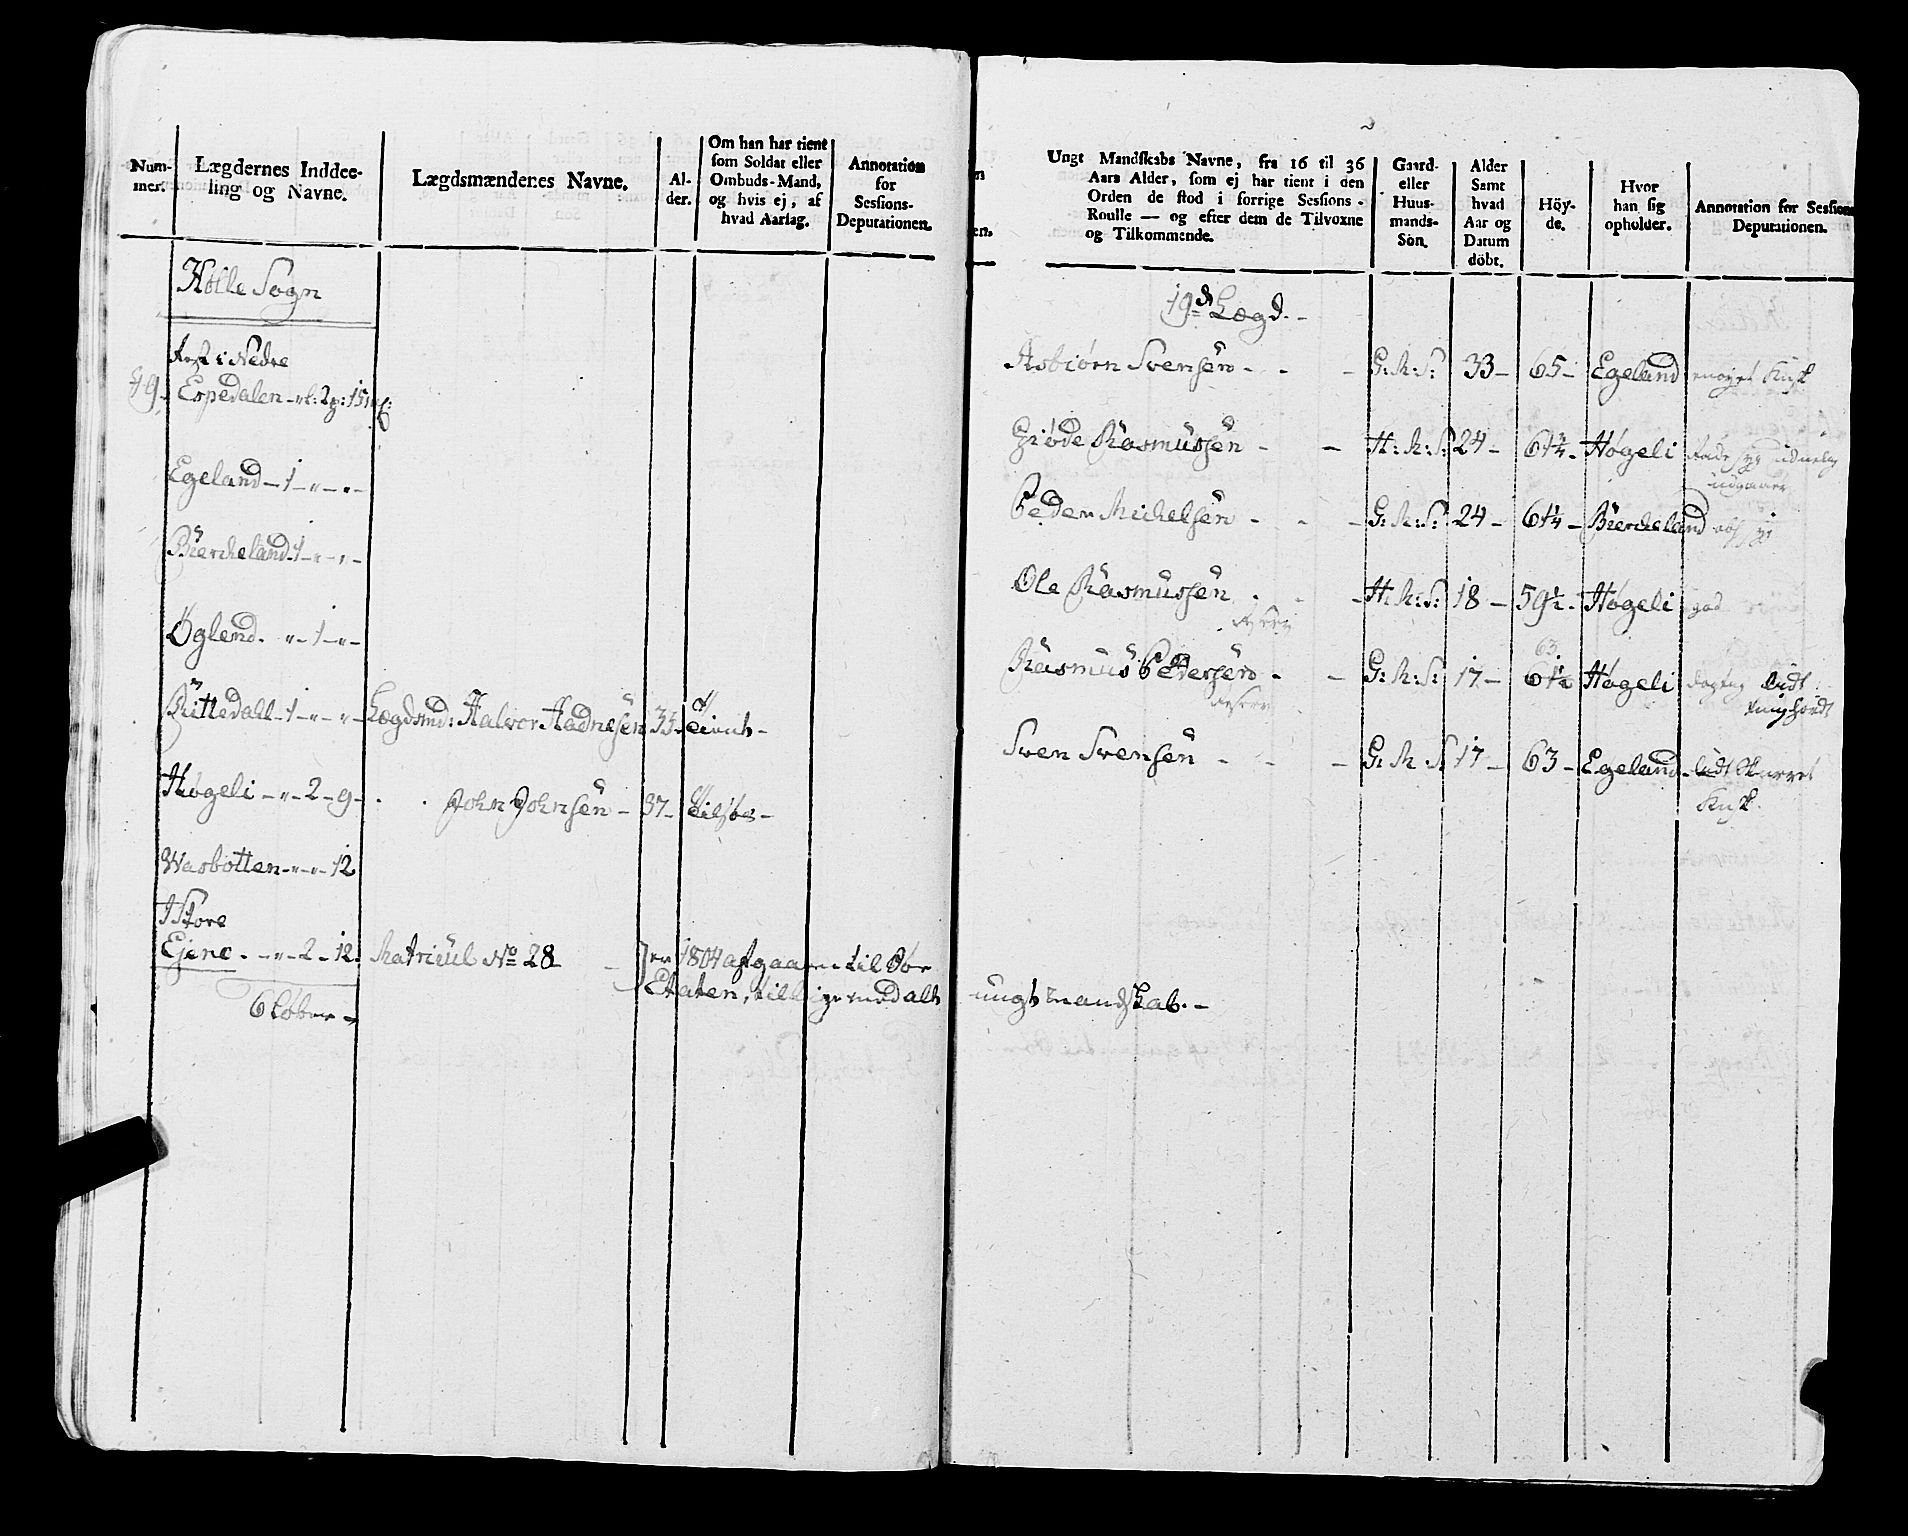 Num-
mer.
Lægdernes Inddee-
ling og Navne.
Lægdsmændenes Navne.
Al-
der.
Om han har tient
som Soldat eller
Ombuds-Mand,
og hvis ej, af
hvad Aarsag.
Annotation
for
Sessions-
Deputationen.
Holle Sogn
Espedalen
Egeland - 1 - " - " -
Bierckeland 1 - " - " -
Øglend. " - 1 - " -
Rittedall - 1 - " - " - Lægdsmd: Halvor Hadnesen 35
Høgeli - " - 2 - 9 - John Johnsen - 37 -
Wasbotten - " - " - 12
I Store
Ejene. - " - 2 - 12. Matricul No 28 er 1804 afgaaen til Søe
Etaten, tillige med alt ungt mandskab. -
6 Løber -
Ungt Mandskabs Navne, fra 16 til 36
Aars Alder, som ej har tient i den
Orden de stod i forrige Sessions-
Roulle — og efter dem de Tilvoxne
og Tilkommende.
Gaard-
eller
Huus-
mands-
Søn.
Alder
Samt
hvad
Aar og
Datum
döbt.
Höy-
de.
Hvor
han sig
opholder.
Annotation for Sessions
Deputationen.
19d Lægd. -
Asbiørn Svensen - - - G: R: S: 33 - 65 - Egeland
Giøde Rasmussen - - H: R: S: 24 - Høgeli
Peder Michelsen - - - G: R: S: 24 - 61¼ - Bierckeland
Ole Rasmussen - - - H: R: S: 18 - 59½ - Høgeli god
Rasmus Pedersen - - G: R: S: 17 - 61½ 63 Høgeli
Sven Svensen - - - G: R: S 17 - 63 - Egeland